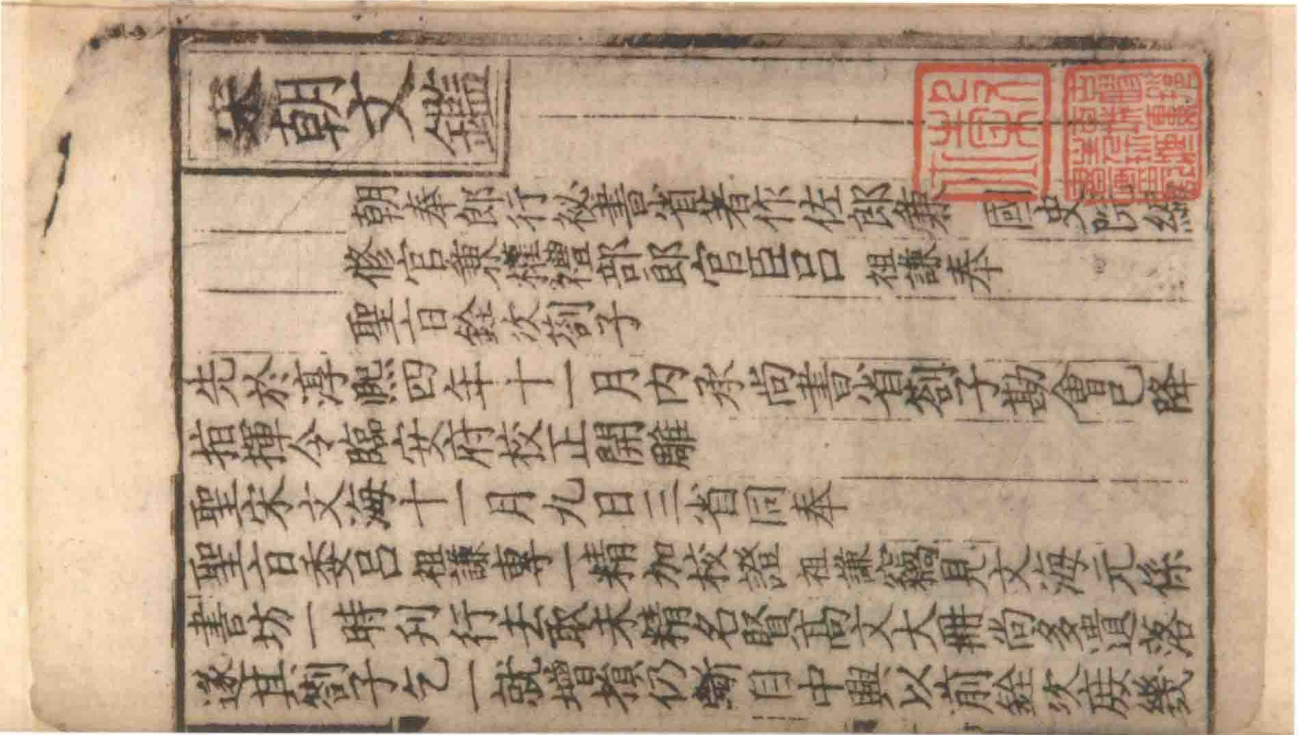 宋朝文鑑
朝奉郎行祕書省著作佐郎兼 國史院編
修官兼權禮部郎官臣呂 祖謙奉
聖旨銓次劄子
先於淳熙四年十一月内承尚書省劄子勘會已降
指揮令臨安府校正開雕
聖宋文海十一月九日三省同奉
聖旨委呂祖謙專一精加校證祖謙竊見文海元係
書坊一時刊行去取未精名賢高文大冊尚多遺落
遂具劄子乞一就增損仍斷自中興以前銓次庶幾